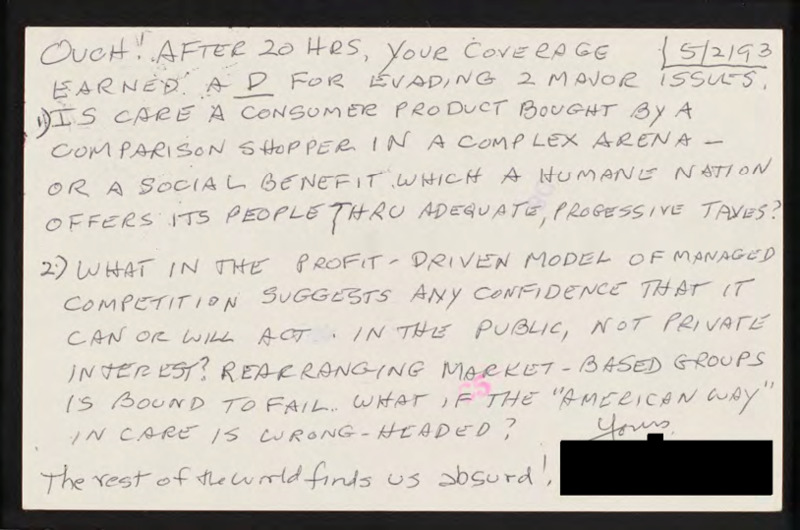 OUCH! AFTER 20 HRS, YOUR COVERAGE 5/2/93
EARNED A D FOR EVADING 2 MAJOR ISSUES.
1) IS CARE A CONSUMER PRODUCT BOUGHT BY A
COMPARISON SHOPPER IN A COMPLEX ARENA —
OR A SOCIAL BENEFIT WHICH A HUMANE NATION
OFFERS ITS PEOPLE THRU ADEQUATE, PROGESSIVE TAXES?
2) WHAT IN THE PROFIT-DRIVEN MODEL OF MANAGED
COMPETITION SUGGESTS ANY CONFIDENCE THAT IT
CAN OR WILL ACT IN THE PUBLIC, NOT PRIVATE
INTEREST? REARRANGING MARKET-BASED GROUPS
IS BOUND TO FAIL. WHAT IF THE "AMERICAN WAY"
IN CARE IS WRONG-HEADED? Yours
The rest of the world finds us absurd!